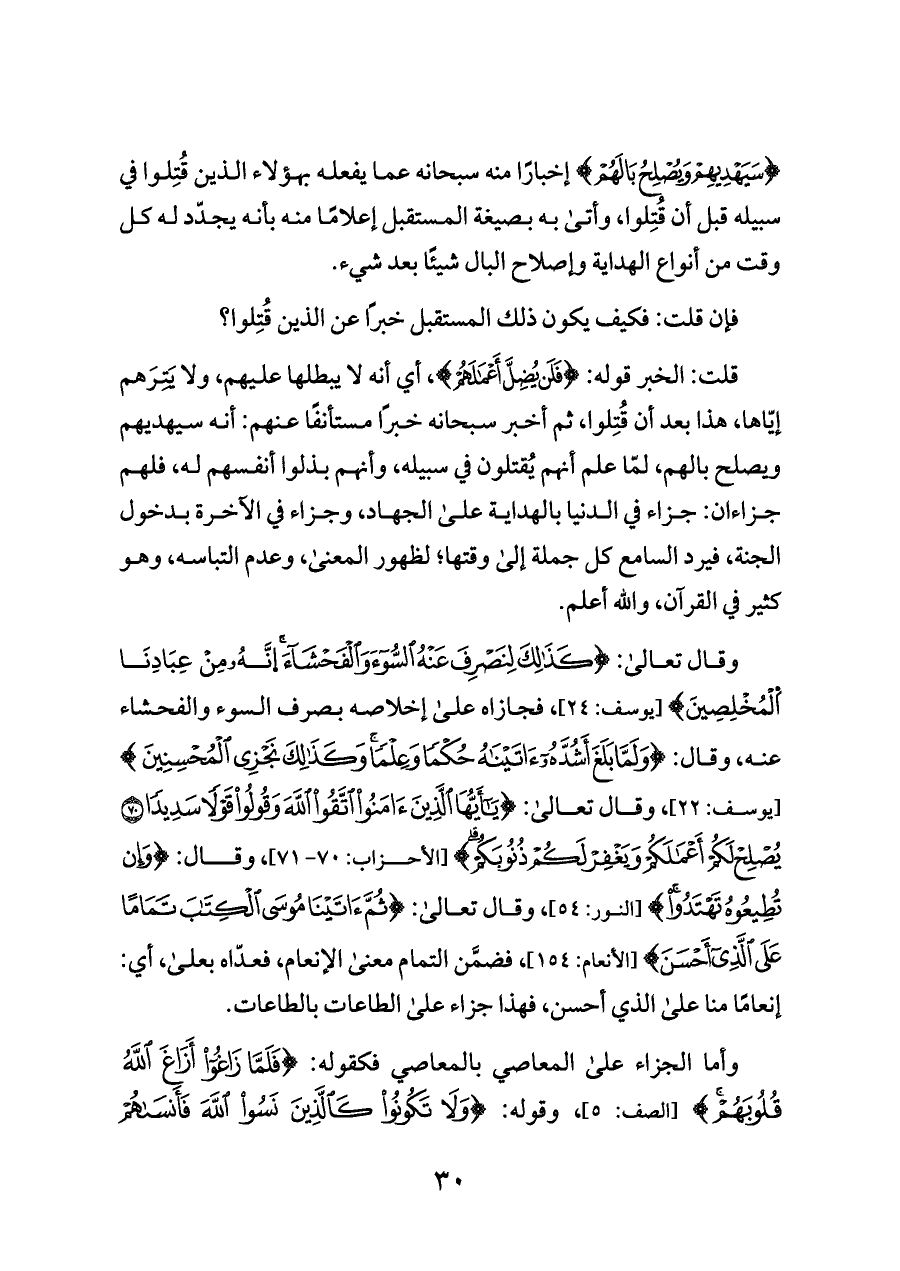 ﴿سَيَهْدِيهِمْ وَيُصْلِحُ بَالَهُمْ﴾ إخبارًا منه سبحانه عما يفعله بهؤلاء الذين قُتِلوا في
سبيله قبل أن قُتِلوا، وأتىٰ به بصيغة المستقبل إعلامًا منه بأنه يجدّد له كل
وقت من أنواع الهداية وإصلاح البال شيئًا بعد شيء.
فإن قلت: فكيف يكون ذلك المستقبل خبرًا عن الذين قُتِلوا؟
قلت: الخبر قوله: ﴿فَلَن يُضِلَّ أَعْمَٰلَهُمْ﴾، أي أنه لا يبطلها عليهم، ولا يَتِرَهم
إيّاها، هذا بعد أن قُتِلوا، ثم أخبر سبحانه خبرًا مستأنفًا عنهم: أنه سيهديهم
ويصلح بالهم، لمّا علم أنهم يُقتلون في سبيله، وأنهم بذلوا أنفسهم له، فلهم
جزاءان: جزاء في الدنيا بالهداية علىٰ الجهاد، وجزاء في الآخرة بدخول
الجنة، فيرد السامع كل جملة إلىٰ وقتها؛ لظهور المعنىٰ، وعدم التباسه، وهو
كثير في القرآن، والله أعلم.
وقال تعالىٰ: ﴿كَذَٰلِكَ لِنَصْرِفَ عَنْهُ ٱلسُّوٓءَ وَٱلْفَحْشَآءَ ۚ إِنَّهُۥ مِنْ عِبَادِنَا
ٱلْمُخْلِصِينَ﴾ [يوسف: ٢٤]، فجازاه علىٰ إخلاصه بصرف السوء والفحشاء
عنه، وقال: ﴿وَلَمَّا بَلَغَ أَشُدَّهُۥٓ ءَاتَيْنَٰهُ حُكْمًا وَعِلْمًا ۚ وَكَذَٰلِكَ نَجْزِى ٱلْمُحْسِنِينَ﴾
[يوسف: ٢٢]، وقال تعالىٰ: ﴿يَٰٓأَيُّهَا ٱلَّذِينَ ءَامَنُوا۟ ٱتَّقُوا۟ ٱللَّهَ وَقُولُوا۟ قَوْلًا سَدِيدًا ٧٠
يُصْلِحْ لَكُمْ أَعْمَٰلَكُمْ وَيَغْفِرْ لَكُمْ ذُنُوبَكُمْ ۗ﴾ [الأحزاب: ٧٠-٧١]، وقال: ﴿وَإِن
تُطِيعُوهُ تَهْتَدُوا۟ ۚ﴾ [النور: ٥٤]، وقال تعالىٰ: ﴿ثُمَّ ءَاتَيْنَا مُوسَى ٱلْكِتَٰبَ تَمَامًا
عَلَى ٱلَّذِىٓ أَحْسَنَ﴾ [الأنعام: ١٥٤]، فضمَّن التمام معنىٰ الإنعام، فعدّاه بعلىٰ، أي:
إنعامًا منا علىٰ الذي أحسن، فهذا جزاء علىٰ الطاعات بالطاعات.
وأما الجزاء علىٰ المعاصي بالمعاصي فكقوله: ﴿فَلَمَّا زَاغُوٓا۟ أَزَاغَ ٱللَّهُ
قُلُوبَهُمْ ۚ﴾ [الصف: ٥]، وقوله: ﴿وَلَا تَكُونُوا۟ كَٱلَّذِينَ نَسُوا۟ ٱللَّهَ فَأَنسَىٰهُمْ
٣٠